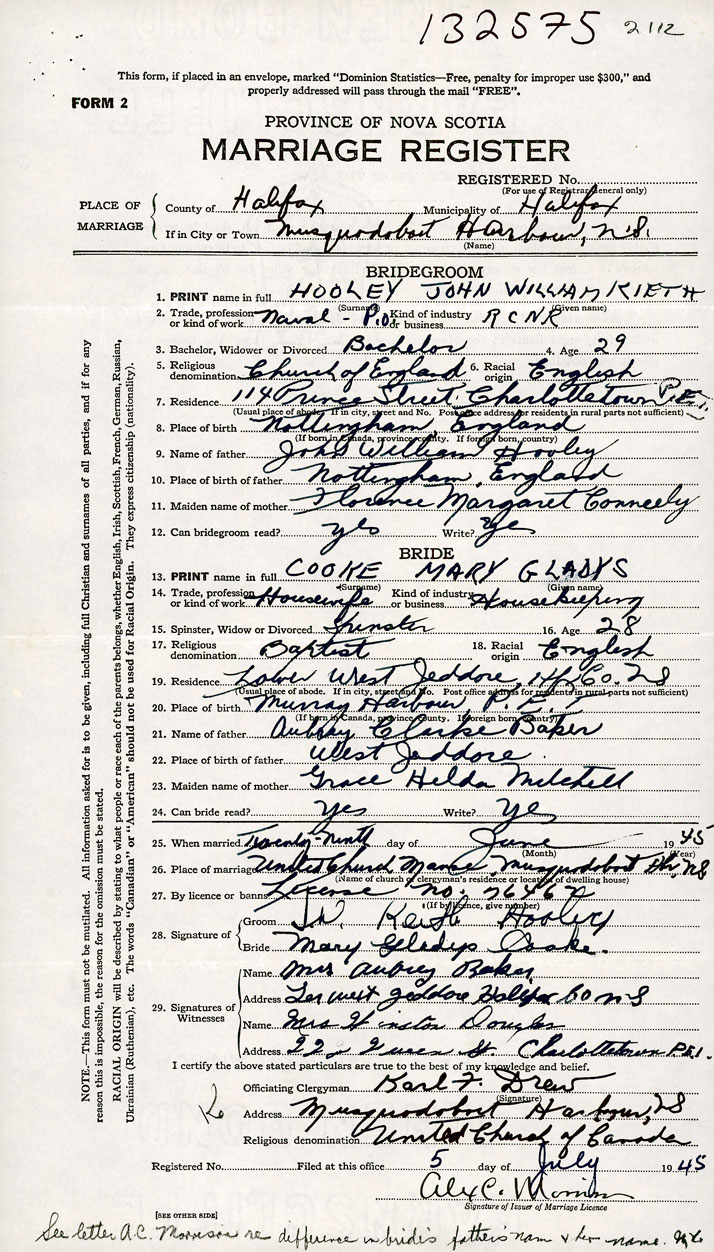 132575 2112
This form, if placed in an envelope, marked "Dominion Statistics—Free, penalty for improper use $300," and
properly addressed will pass through the mail "FREE".
FORM 2
PROVINCE OF NOVA SCOTIA
MARRIAGE REGISTER
REGISTERED No.
(For use of Registrar General only)
PLACE OF MARRIAGE
County of Halifax Municipality of Halifax
If in City or Town Musquodoboit Harbour, N.S.
(Name)
BRIDEGROOM
1. PRINT name in full HOOLEY JOHN WILLIAM KIETH
(Surname) (Given name)
2. Trade, profession or kind of work Naval - P.O. Kind of industry or business RCNR
3. Bachelor, Widower or Divorced Bachelor 4. Age 29
5. Religious denomination Church of England 6. Racial origin English
7. Residence 114 Prince Street, Charlottetown P.E.I.
(Usual place of abode. If in city, street and No. Post office address for residents in rural parts not sufficient)
8. Place of birth Nottingham, England
(If born in Canada, province, county. If foreign born, country)
9. Name of father John William Hooley
10. Place of birth of father Nottingham, England
11. Maiden name of mother Florence Margaret Conneely
12. Can bridegroom read? yes Write? yes
BRIDE
13. PRINT name in full COOKE MARY GLADYS
(Surname) (Given name)
14. Trade, profession or kind of work Housewife Kind of industry or business Housekeeping
15. Spinster, Widow or Divorced Spinster 16. Age 28
17. Religious denomination Baptist 18. Racial origin English
19. Residence Lower West Jeddore, Hfx Co. NS
(Usual place of abode. If in city, street and No. Post office address for residents in rural parts not sufficient)
20. Place of birth Murray Harbour, P.E.I
(If born in Canada, province, county. If foreign born, country)
21. Name of father Aubrey Clarke Baker
22. Place of birth of father West Jeddore
23. Maiden name of mother Grace Helda Mitchell
24. Can bride read? Yes Write? Yes
25. When married Twenty-Ninth day of June 1945
(Month) (Year)
26. Place of marriage United Church Manse, Musquodoboit Hbr. NS
(Name of church or clergyman's residence or location of dwelling house)
27. By licence or banns License No. 76462
(If by licence, give number)
28. Signature of
Groom J.W. Keith Hooley
Bride Mary Gladys Cooke.
29. Signatures of Witnesses
Name Mrs Aubrey Baker
Address Lr west Jeddore Halifax Co N-S
Name Mrs Winston Douglas
Address Queen St. Charlottetown P.E.I.
I certify the above stated particulars are true to the best of my knowledge and belief.
Officiating Clergyman Karl F. Drew
(Signature)
Address Musquodoboit Harbour, NS
Religious denomination United Church of Canada
Registered No. Filed at this office 5 day of July 1945
Alex C. Morrison
Signature of Issuer of Marriage Licence
[SEE OTHER SIDE]
See letter A.C. Morrison re difference in bride's father's nam & her name.
NOTE.—This form must not be mutilated. All information asked for is to be given, including full Christian and surnames of all parties, and if for any
reason this is impossible, the reason for the omission must be stated.
RACIAL ORIGIN will be described by stating to what people or race each of the parents belongs, whether English, Irish, Scottish, French, German, Russian,
Ukrainian (Ruthenian), etc. The words "Canadian" or "American" should not be used for Racial Origin. They express citizenship (nationality).